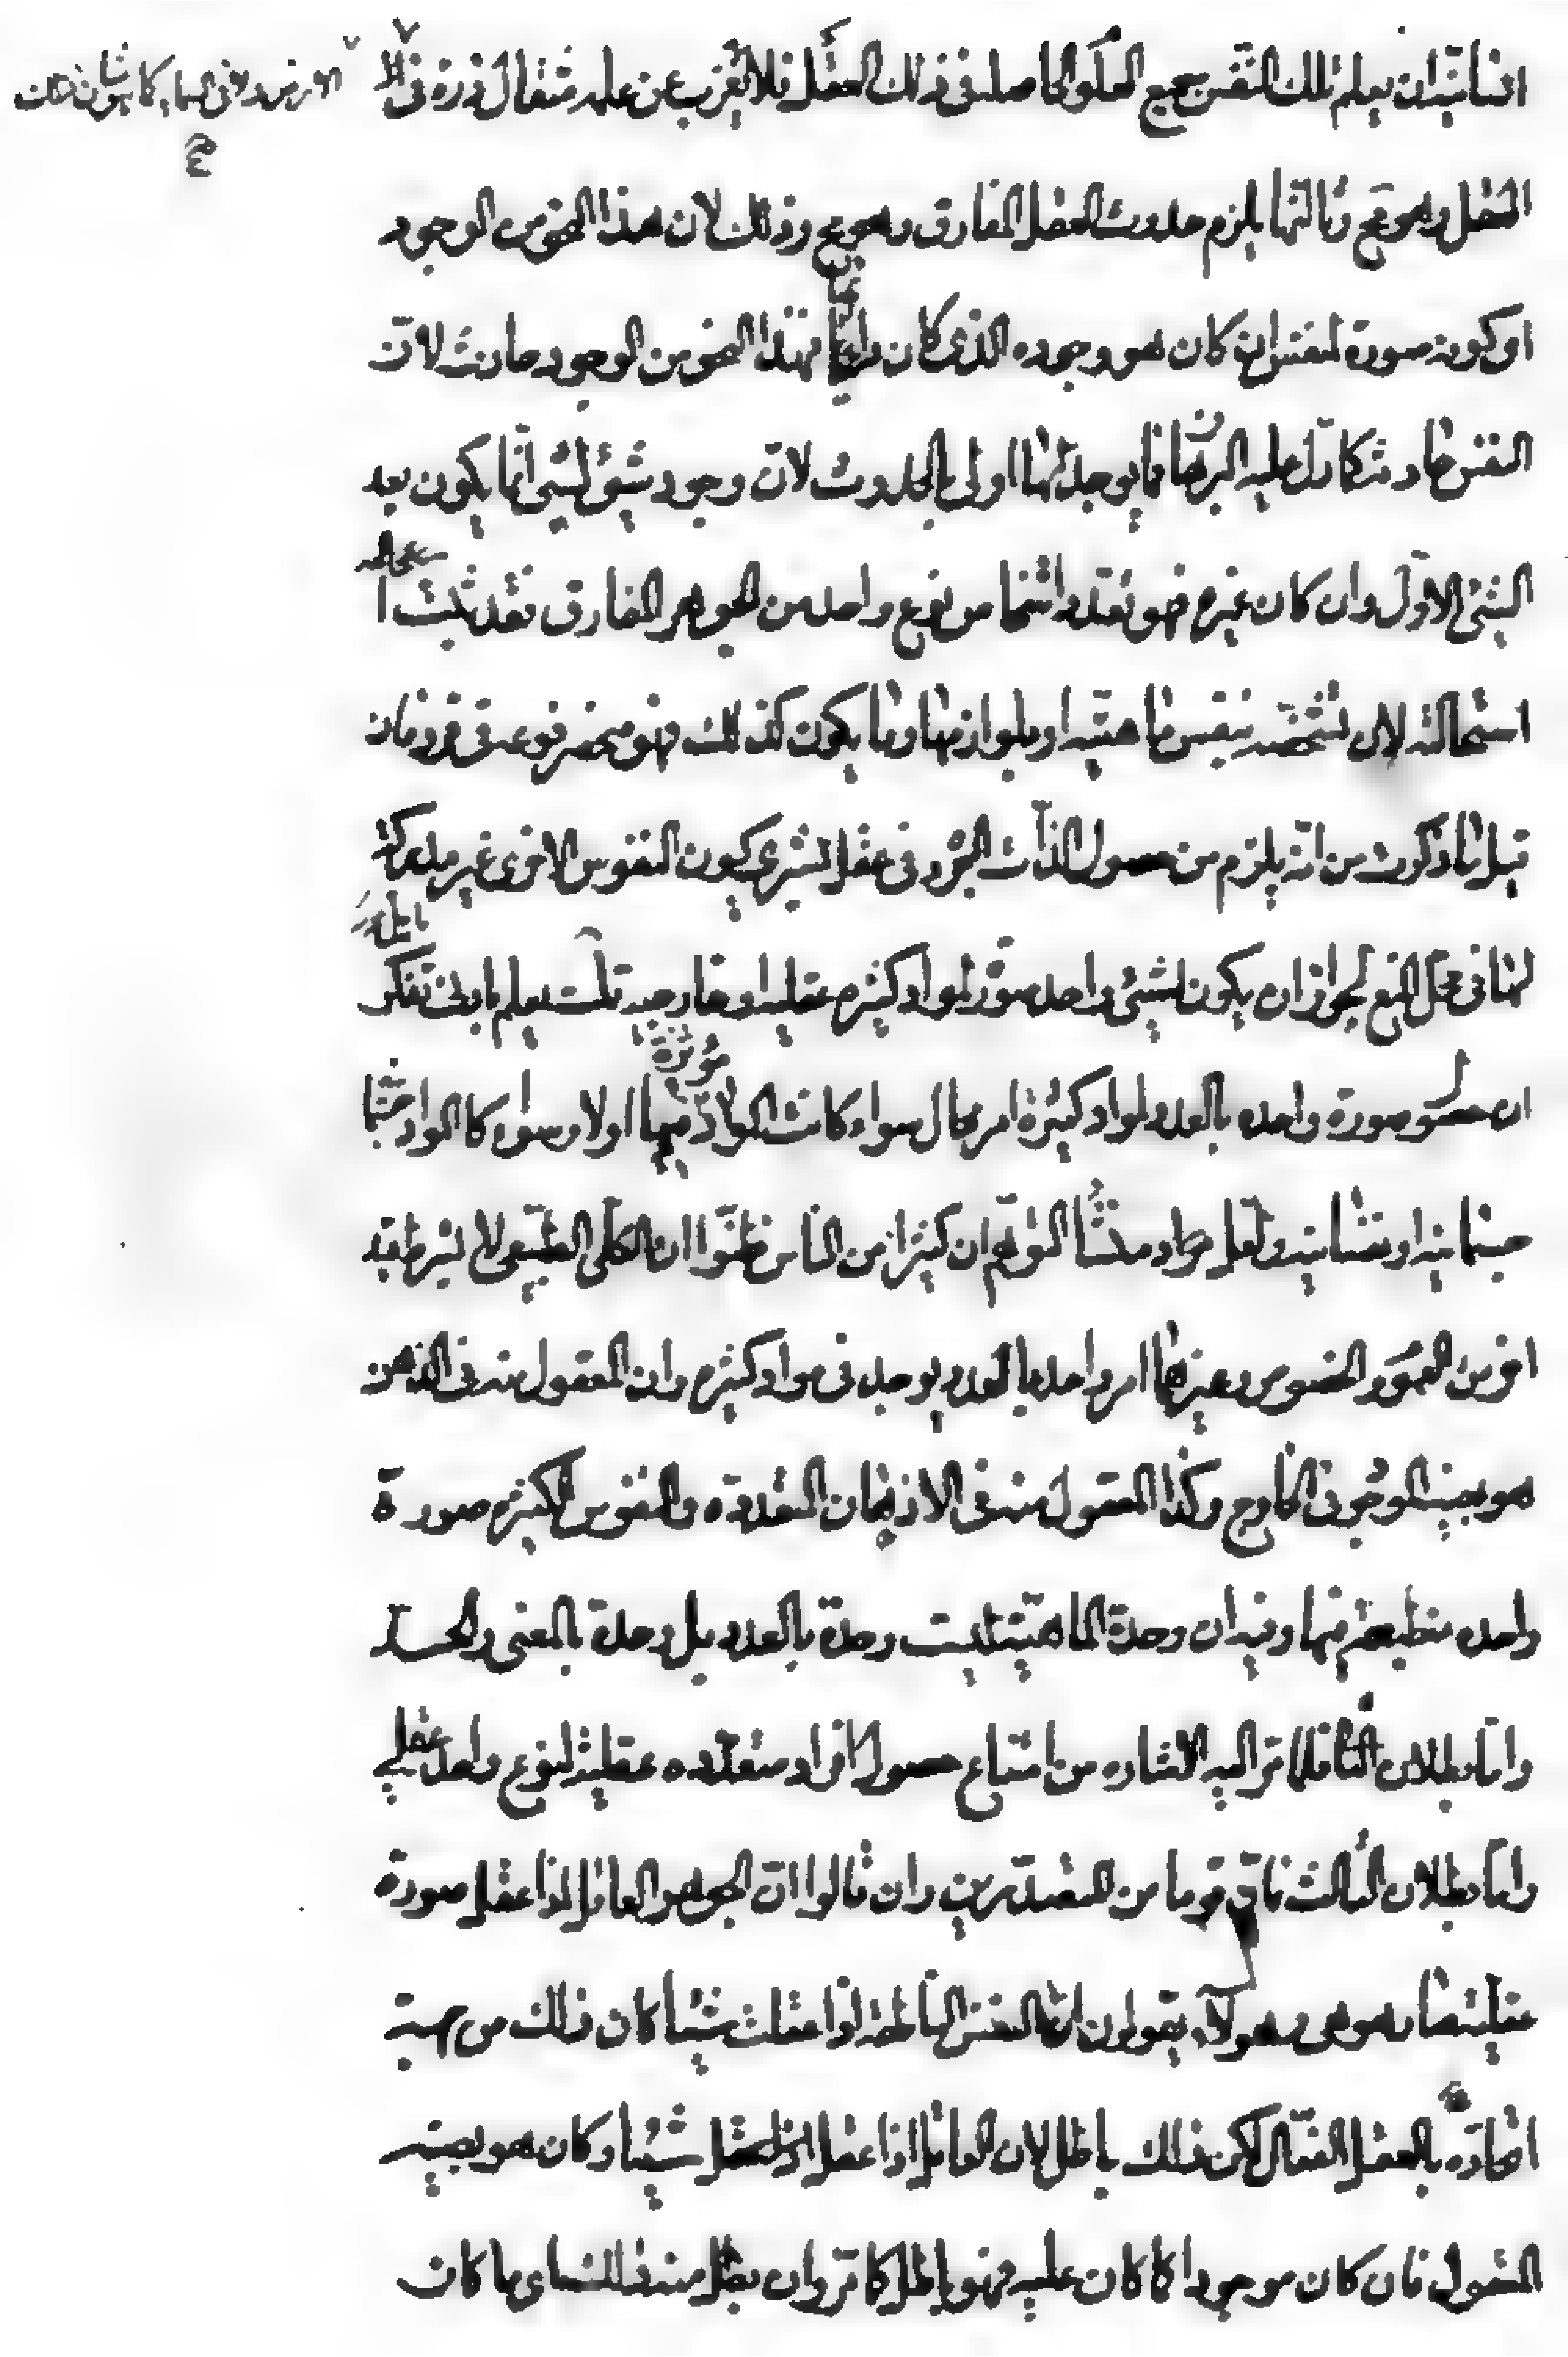 انسانية ان يعلم تلك النفس جميع العلوم الحاصلة في ذلك العقل فلا يعزب عن علمه مثقال ذرة في
الارض ولا في السماء كما هو شان ذلك
العقل وهو مح وثالثها يلزم حدوث العقل المفارق وهو مح وذلك لان هذا النحو من الوجود
او كونه صورة لنفس ان كان هو وجوده الذي كان دايما فهذا النحو من الوجود حادث لان
النفس حادثة كما دل عليه البرهان فما يوجد لها اولى بالحدوث لان وجود شئ لشئ انما يكون بعد
الشئ الاول وان كان غيره فهو تعدد اشخاص نوع واحد من الجوهر المفارق فقد ثبت
استحالته لان تشخصه بنفس ماهيته او بلوازمها وما يكون كذلك فهو منحصر نوعه في فرد فان
قيل ما ذكرت من انه يلزم من حصول الذات المجرد في عقل بشري كون النفوس الاخرى غير مدركة
لها في محل المنع لجواز ان يكون لشئ واحد صور لمواد كثيرة عقلية او خارجية قلت يعلم بادنى تفكر
ان حصول صورة واحده بالعدد لمواد كثيرة امر محال سواء كانت المواد اولا وسواء كا المواد
جسمانية او نفسانية ولعل منشا التوهم ان كثيرا من الناس ظنوا ان الكلي الطبيعي لا بشرط قيد
اخر من العموم والخصوص وغيرها امر واحد بالعدد يوجد في مواد كثيره وان المعقول منه في الذهن
هو بعينه الموجود في الخارج وكذا المعقول منه في الاذهان المتعددة والنفوس الكثيره صورة
واحده منطبعة فيها وفيه ان وحدة الماهية ليست وحدة بالعدد بل وحدة بالمعنى والحد
واما بطلان الثاني فلما مر اليه الاشاره من امتناع حصول افراد متعدده عقلية لنوع واحد عقلي
واما بطلان الثالث فان قوما من المتصدرين وان قالوا ان الجوهر العاقل اذا عقل صورة
عقلية صار هو هي وهولاء يقولون ان النفس الناطقة اذا عقلت شيئا كان ذلك من جهة
اتحاده بالعقل الفعال لكن ذلك باطل لان العاقل اذا عقل شيئا وكان هو بعينه
المعقول فان كان موجودا كما كان عليه فهو باطل كما مر وان بطل منه ما كان